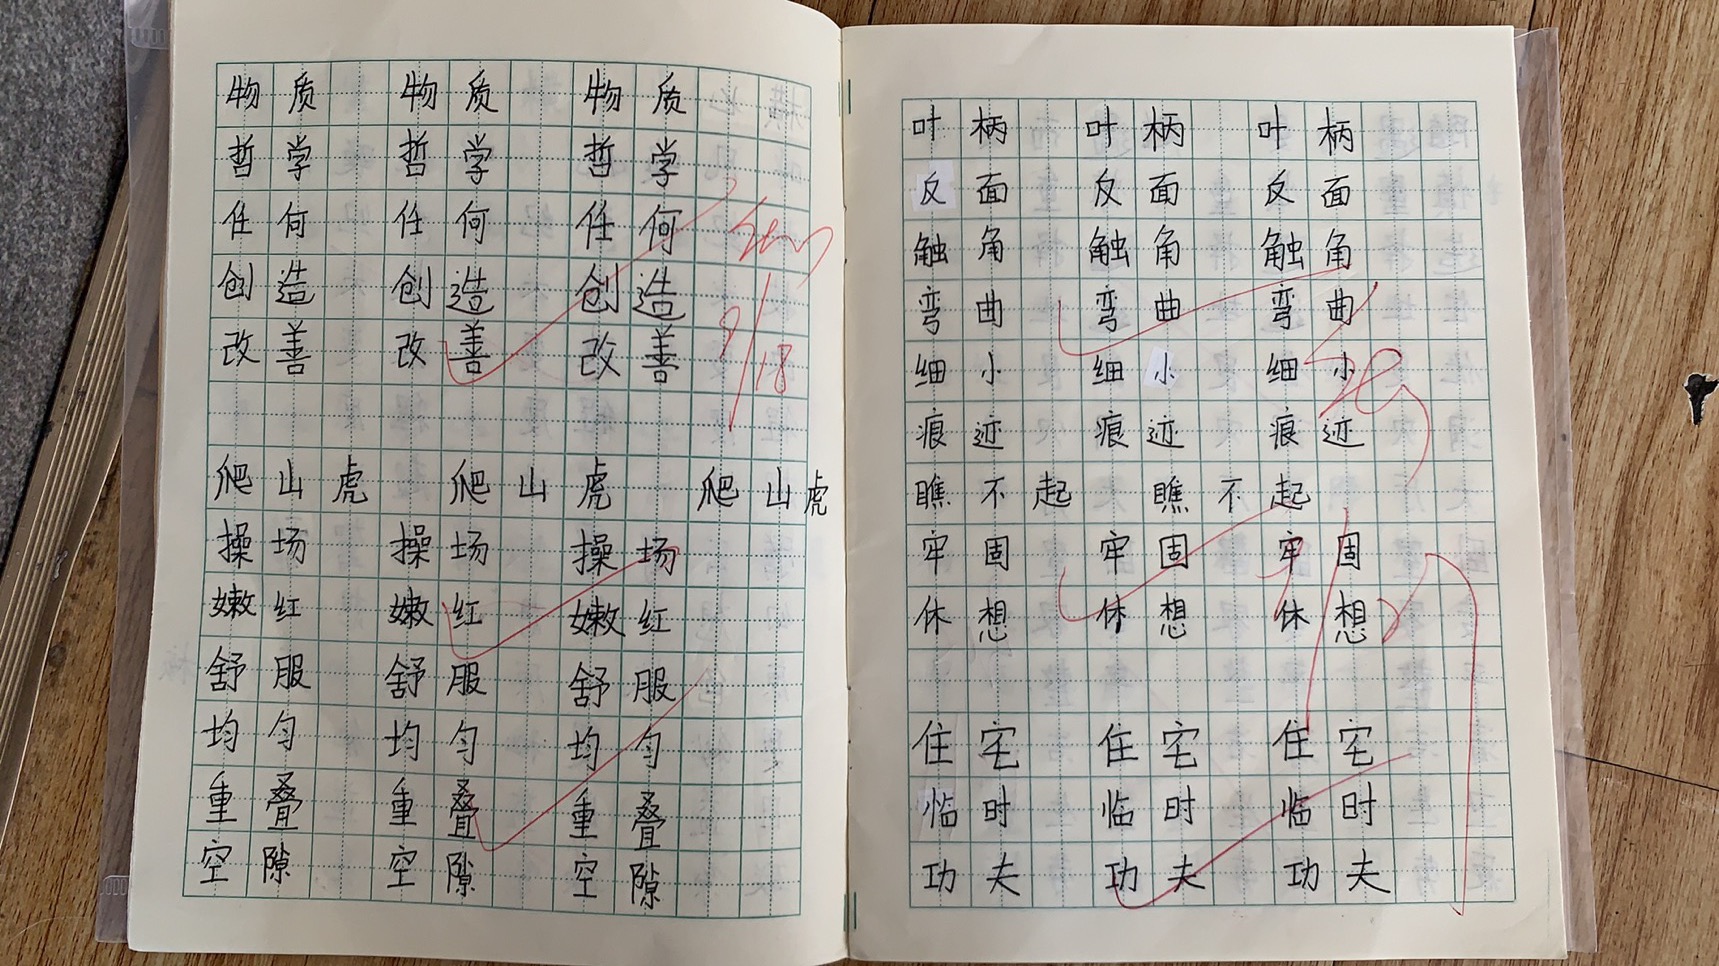 物质 物质 物质
哲学 哲学 哲学
任何 任何 任何
创造 创造 创造
改善 改善 改善
9/18
爬山虎 爬山虎 爬山虎
操场 操场 操场
嫩红 嫩红 嫩红
舒服 舒服 舒服
均匀 均匀 均匀
重叠 重叠 重叠
空隙 空隙 空隙
叶柄 叶柄 叶柄
反面 反面 反面
触角 触角 触角
弯曲 弯曲 弯曲
细小 细小 细小
痕迹 痕迹 痕迹
瞧不起 瞧不起
牢固 牢固 牢固
休想 休想 休想
住宅 住宅 住宅
临时 临时 临时
功夫 功夫 功夫